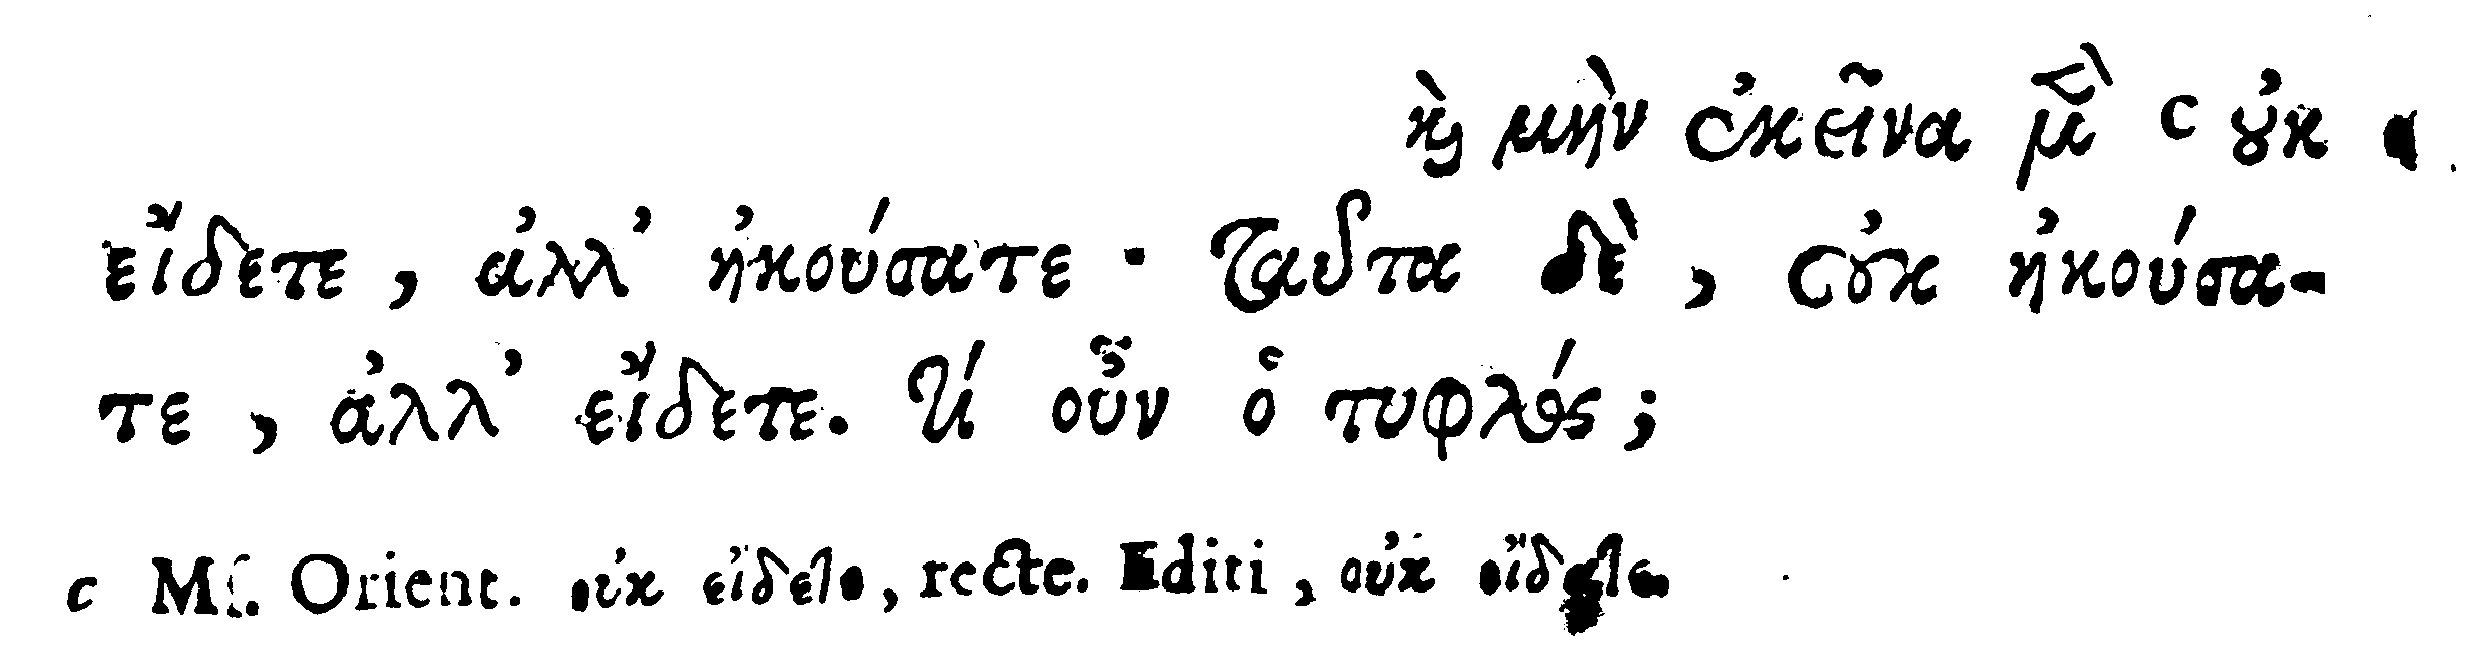 καὶ μὴν ἐκεῖνα μὲν c οὐκ
εἴδετε, ἀλλ' ἠκούσατε · ταῦτα δὲ, οὐκ ἠκούσα-
τε, ἀλλ' εἴδετε. τί οὖν ὁ τυφλός;
c Mſ. Orient. οὐκ εἴδετε, recte. Editi, οὐκ οἴδατε.